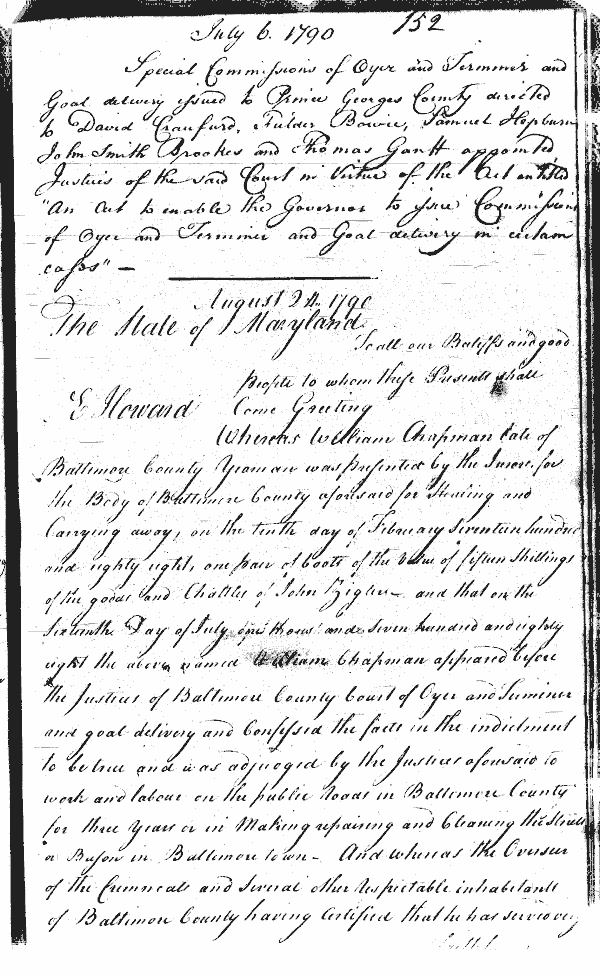 July 6. 1790 152
Special Commissions of Oyer and Terminer and
Goal delivery issued to Prince Georges County directed
to David Craufurd, Fielder Bowie, Samuel Hepburn
John Smith Brookes and Thomas Gantt appointed
Justices of the said Court in Virtue of the Act entitled
"An Act to enable the Governor to issue Commissions
of Oyer and Terminer and Goal delivery in certain
cases" —
August 24th 1790
The State of Maryland
To all our Bailiffs and good
people to whom these Presents shall
E Howard Come Greeting
Whereas William Chapman late of
Baltimore County Yeoman was presented by the Jurors for
the Body of Baltimore County aforesaid for Stealing and
Carrying away, on the tenth day of February Seventeen hundred
and eighty eight, one pair of boots of the Value of fifteen Shillings
of the goods and Chattles of John Zigler — and that on the
Sixteenth Day of July one thous and seven hundred and eighty
eight the above named William Chapman appeared before
the Justices of Baltimore County Court of Oyer and Terminer
and goal delivery and Confessed the facts in the indictment
to be true and was adjudged by the Justices aforesaid to
work and labour on the public Roads in Baltimore County
for three Years or in Making repairing and Cleaning the Streets
or Bason in Baltimore town — And whereas the Overseer
of the Criminals and Several other respectable inhabitants
of Baltimore County having Certified that he has served very